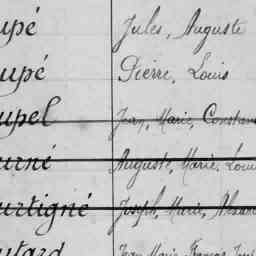 upé Jules, Auguste
upé Pierre, Louis
upel Jean, Marie, Constan
urné Auguste, Marie, Loui
urtigné Joseph, Marie, Alexan
utard Jean Marie François